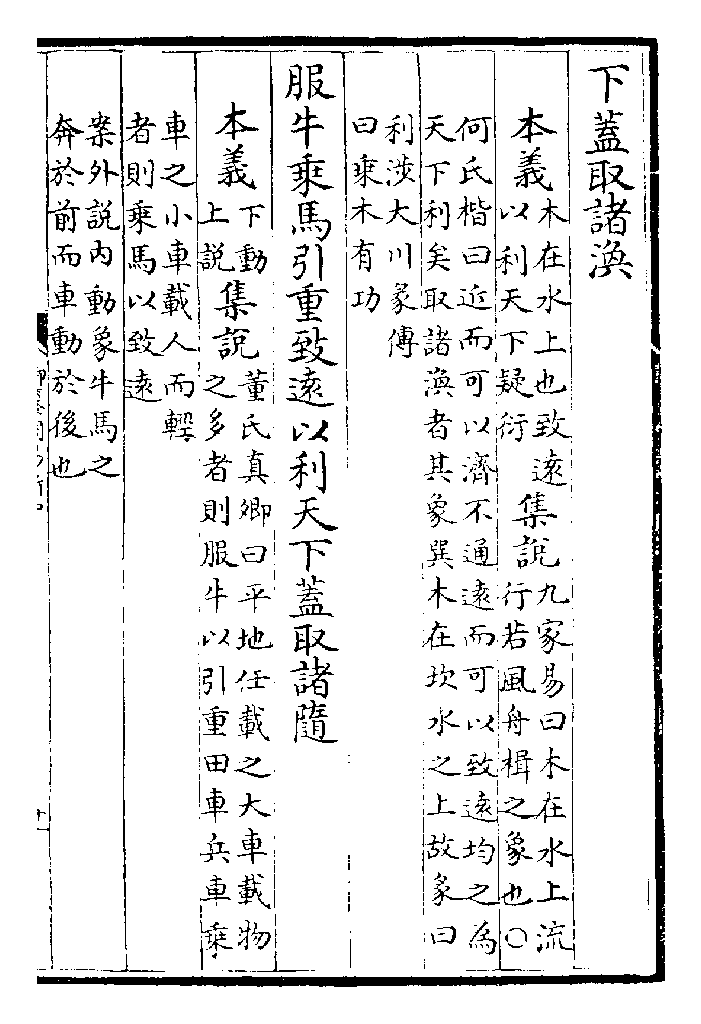 下蓋取諸渙
本義木在水上也致遠
以利天下疑衍
集說九家易曰木在水上流
行若風舟楫之象也○
何氏楷曰近而可以濟不通遠而可以致遠均之為
天下利矣取諸渙者其象巽木在坎水之上故彖曰
利涉大川彖傳
曰乘木有功
服牛乘馬引重致遠以利天下蓋取諸隨
本義下動
上說
集說董氏真卿曰平地任載之大車載物
之多者則服牛以引重田車兵車乘
車之小車載人而輕
者則乘馬以致遠
案外說內動象牛馬之
奔於前而車動於後也